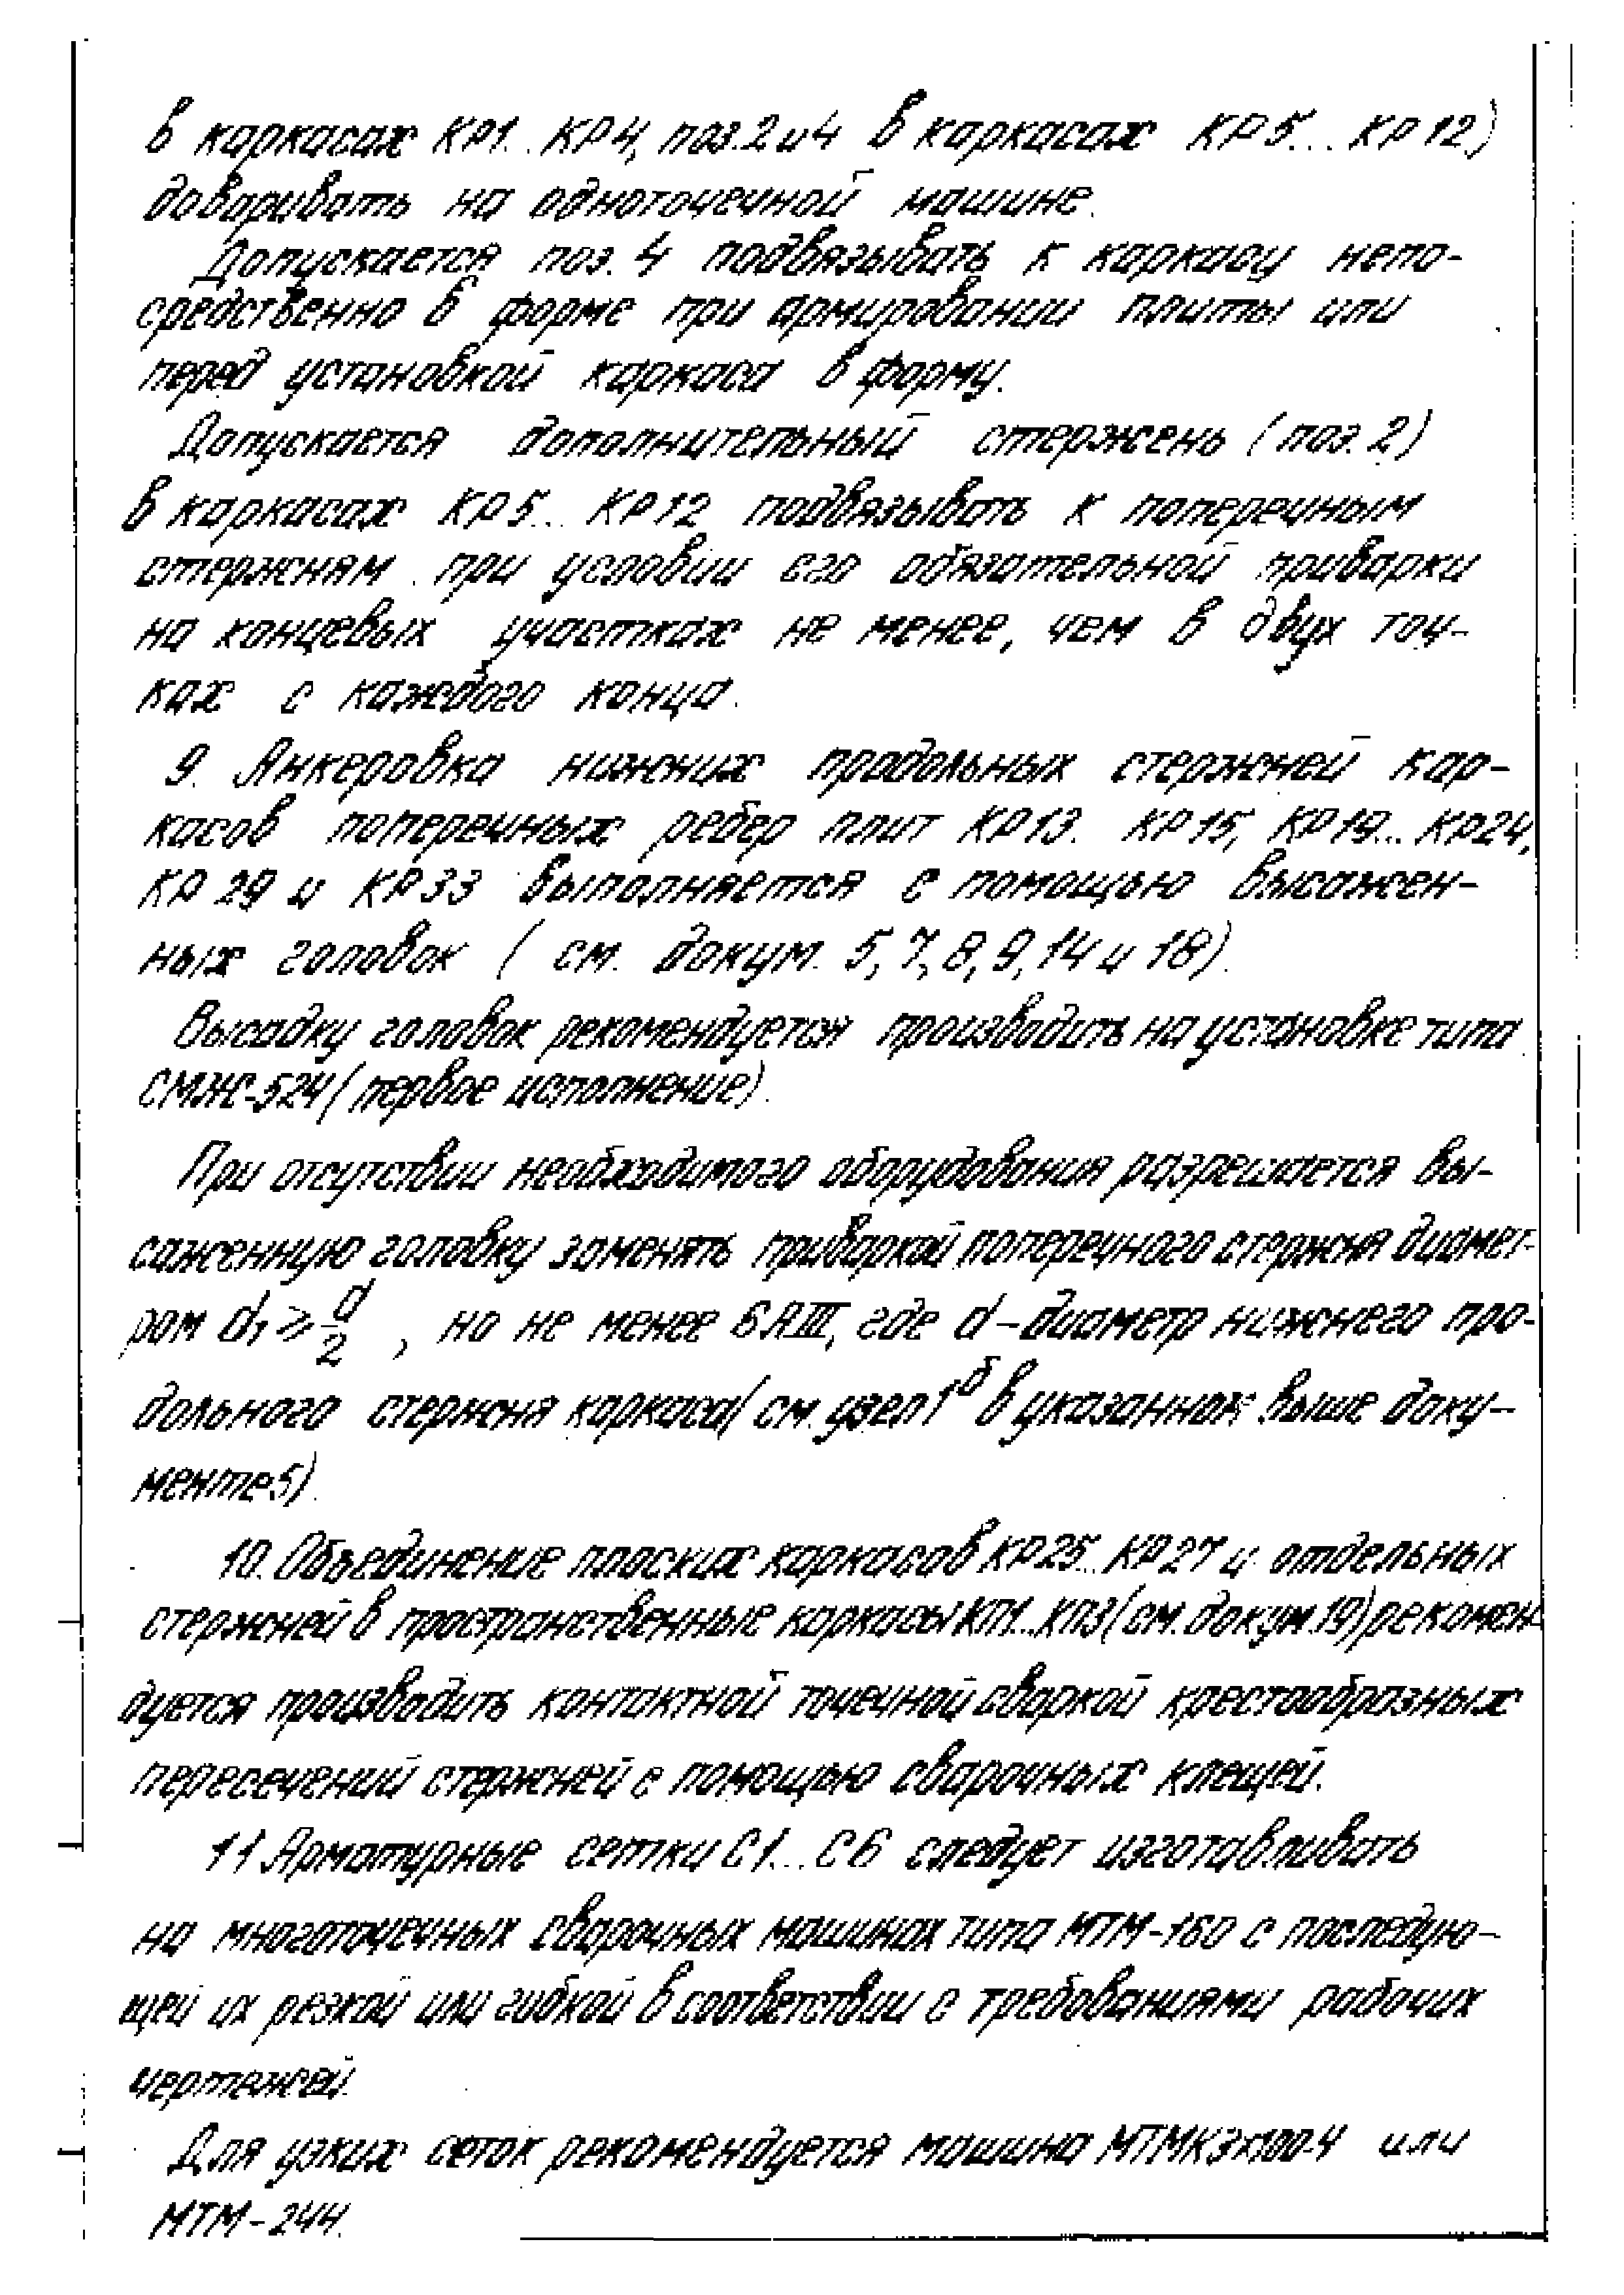 в каркасах КР1...КР4, поз.2 и 4 в каркасах КР5...КР12)
доваривать на одноточечной машине.
Допускается поз.4 подвязывать к каркасу непо-
средственно в форме при армировании плиты или
перед установкой каркаса в форму.
Допускается дополнительный стержень (поз.2)
в каркасах КР5...КР12 подвязывать к поперечным
стержням при условии его обязательной приварки
на концевых участках не менее, чем в двух точ-
ках с каждого конца.
9. Анкеровка нижних продольных стержней кар-
касов поперечных ребер плит КР13...КР15, КР19...КР24,
КР29 и КР33 выполняется с помощью высажен-
ных головок (см. докум. 5,7,8,9,14 и 18).
Высадку головок рекомендуется производить на установке типа
СМЖ-524 (первое исполнение).
При отсутствии необходимого оборудования разрешается вы-
саженную головку заменять приваркой поперечного стержня диамет-
ром d₁ ≥ d/2, но не менее 6АIII, где d - диаметр нижнего про-
дольного стержня каркаса (см. узел 1ᵟ в указанном выше доку-
менте 5).
10. Объединение плоских каркасов КР25...КР27 и отдельных
стержней в пространственные каркасы КП1...КП3 (см. докум.19) рекомен-
дуется производить контактной точечной сваркой крестообразных
пересечений стержней с помощью сварочных клещей.
11 Арматурные сетки С1...С6 следует изготавливать
на многоточечных сварочных машинах типа МТМ-160 с последую-
щей их резкой или гибкой в соответствии с требованиями рабочих
чертежей.
Для узких сеток рекомендуется машина МТМК3х100-4 или
МТМ-244.